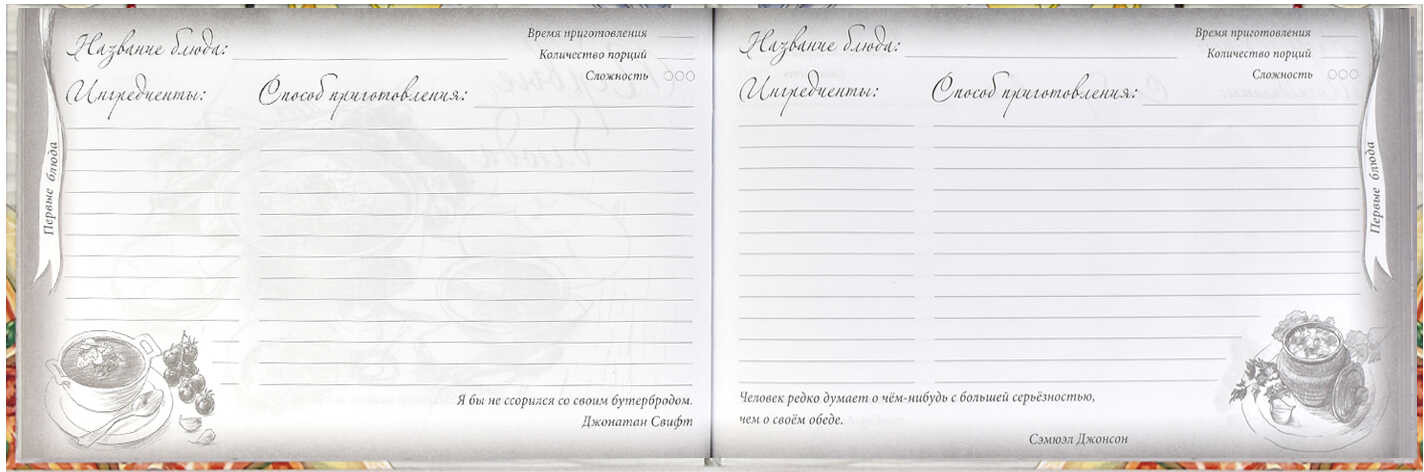 Название блюда:
Время приготовления
Количество порций
Сложность
Ингредиенты:
Способ приготовления:
Первые блюда
Я бы не ссорился со своим бутербродом.
Джонатан Свифт
Название блюда:
Время приготовления
Количество порций
Сложность
Ингредиенты:
Способ приготовления:
Первые блюда
Человек редко думает о чём-нибудь с большей серьёзностью,
чем о своём обеде.
Сэмюэл Джонсон